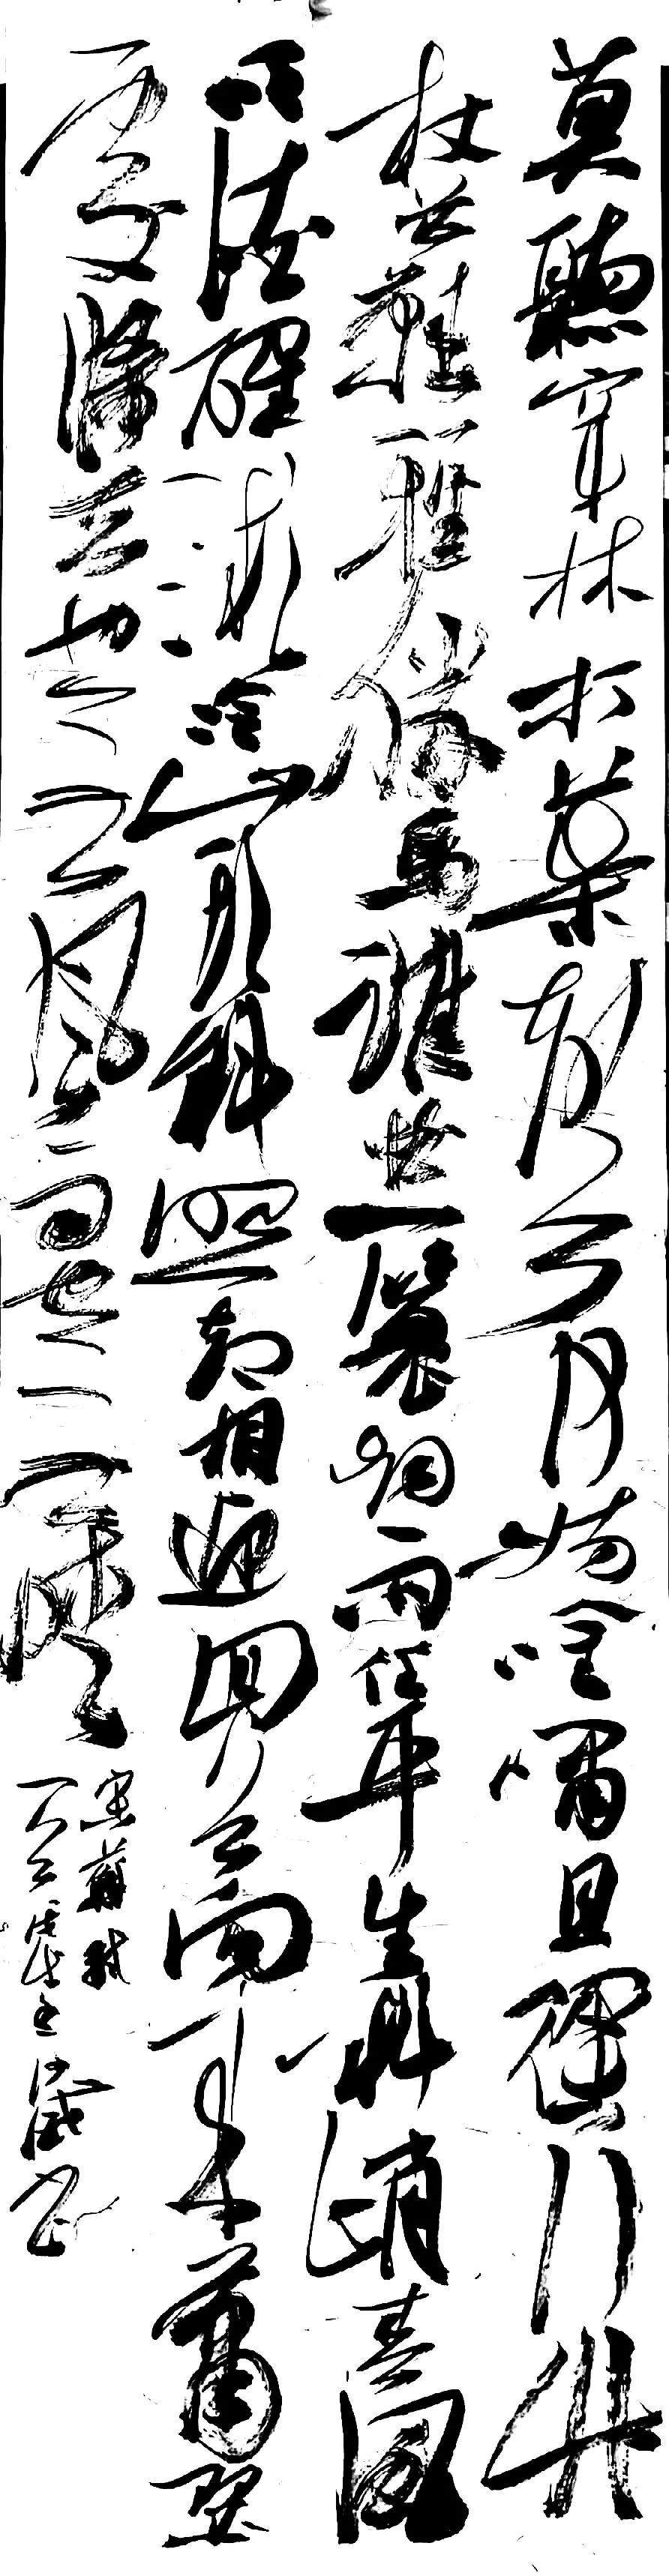 莫聽穿林打葉聲何妨吟嘯且徐行竹
杖芒鞋輕勝馬誰怕一蓑烟雨任平生料峭春風
吹酒醒微冷山頭斜照却相迎回首向來蕭瑟
處歸去也無風雨也無晴
宋蘇軾